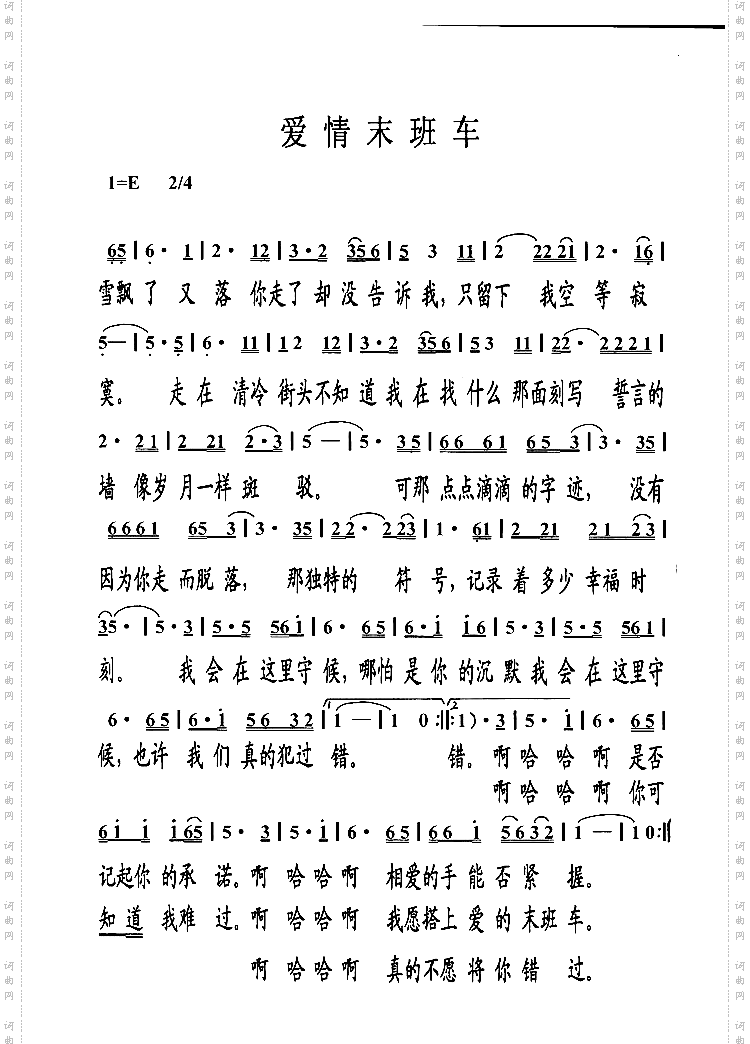 爱情末班车
1=E 2/4
65|6· 1|2· 12|3·2 356|5 3 11|2 2221|2· 16|
雪飘了 又落 你走了却没告诉我，只留下 我空等寂
5—|5·5|6· 11|12 12|3·2 356|53 11|22·2221|
寞。 走在 清冷 街头不知道我在找什么那面刻写 誓言的
2· 21|2 21 2·3|5—|5· 35|66 61 65 3|3· 35|
墙 像岁月一样斑 驳。 可那点点滴滴的字迹， 没有
6661 65 3|3· 35|22·223|1· 61|2 21 21 23|
因为你走而脱落， 那独特的 符号，记录着多少幸福时
35·|5·3|5·5 561|6· 65|6·1 16|5·3|5·5 561|
刻。 我会在这里守候，哪怕是你的沉默我会在这里守
6· 65|6·1 56 32|1—|1 0:‖:1)·3|5· 1|6· 65|
候，也许 我们真的犯过 错。 错。啊哈哈啊 是否
啊哈哈啊 你可
61 1 165|5· 3|5·1|6· 65|66 1 5632|1—|10:‖
记起你的承 诺。啊 哈哈啊 相爱的手能否紧 握。
知道 我难 过。啊 哈哈啊 我愿搭上爱的末班车。
啊 哈哈啊 真的不愿将你错 过。
词曲网